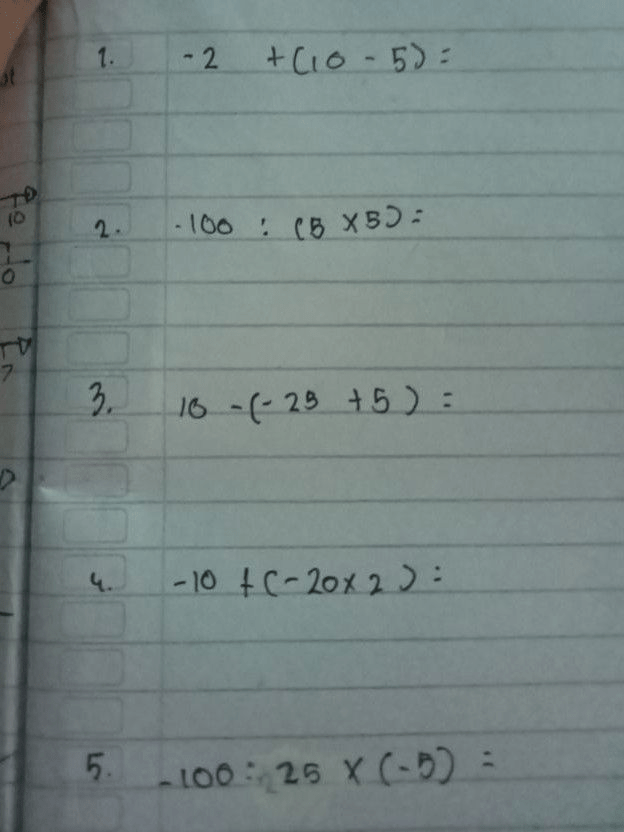 1. -2 +(10 - 5) =
2. -100 : (5 x 5) =
3. 10 -(-25 +5) =
4. -10 +(-20x2) =
5. -100 : 25 x (-5) =